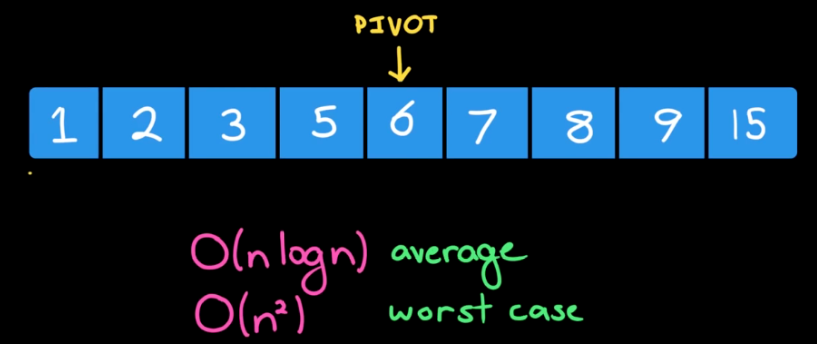 PIVOT
1 2 3 5 6 7 8 9 15
O(n log n) average
O(n²) worst case